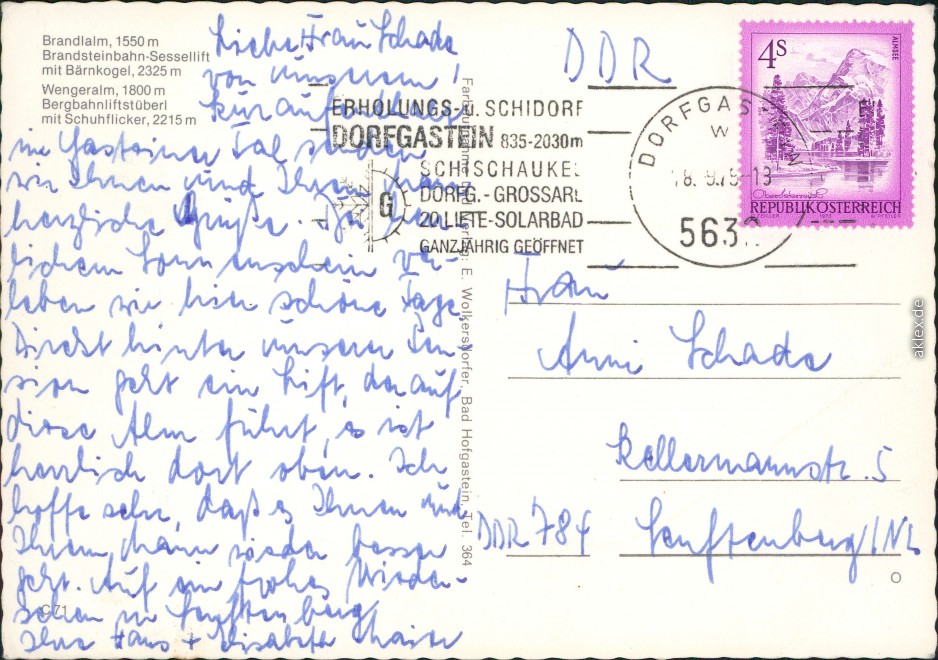 Brandlalm, 1550 m
Brandsteinbahn-Sessellift
mit Bärnkogel, 2325 m
Wengeralm, 1800 m
Bergbahnliftstüberl
mit Schuhflicker, 2215 m
Liebe Frau Schade
von unserem
Kuraufenthalt
im Gasteiner Tal senden
wir Ihnen und Ihrem
herzliche Grüße. Bei
lichem Sonnenschein ver-
leben wir hier schöne Tage.
Direkt hinter unserer Pen
sion geht ein Lift, der auf
diese Alm führt, es ist
herrlich dort oben. Ich
hoffe sehr, daß es Ihnen und
Ihrem Mann wieder besser
geht. Auf ein frohes Wieder-
sehen in Senftenberg
Ihre Hans + Elisabeth
C 71
Verlag: E. Wolkersdorfer, Bad Hofgastein, Tel. 364
ERHOLUNGS-U. SCHIDORF
DORFGASTEIN 835-2030m
SCHISCHAUKEL
DORFG.-GROSSARL
20 LIFTE-SOLARBAD
GANZJÄHRIG GEÖFFNET
G
DORFGASTEIN
5632
4S
ALMSEE
Oberösterreich
REPUBLIK ÖSTERREICH
1973
DDR
Frau
Anni Schade
Kellermannstr. 5
DDR 784 Senftenberg/NL
aklex.de